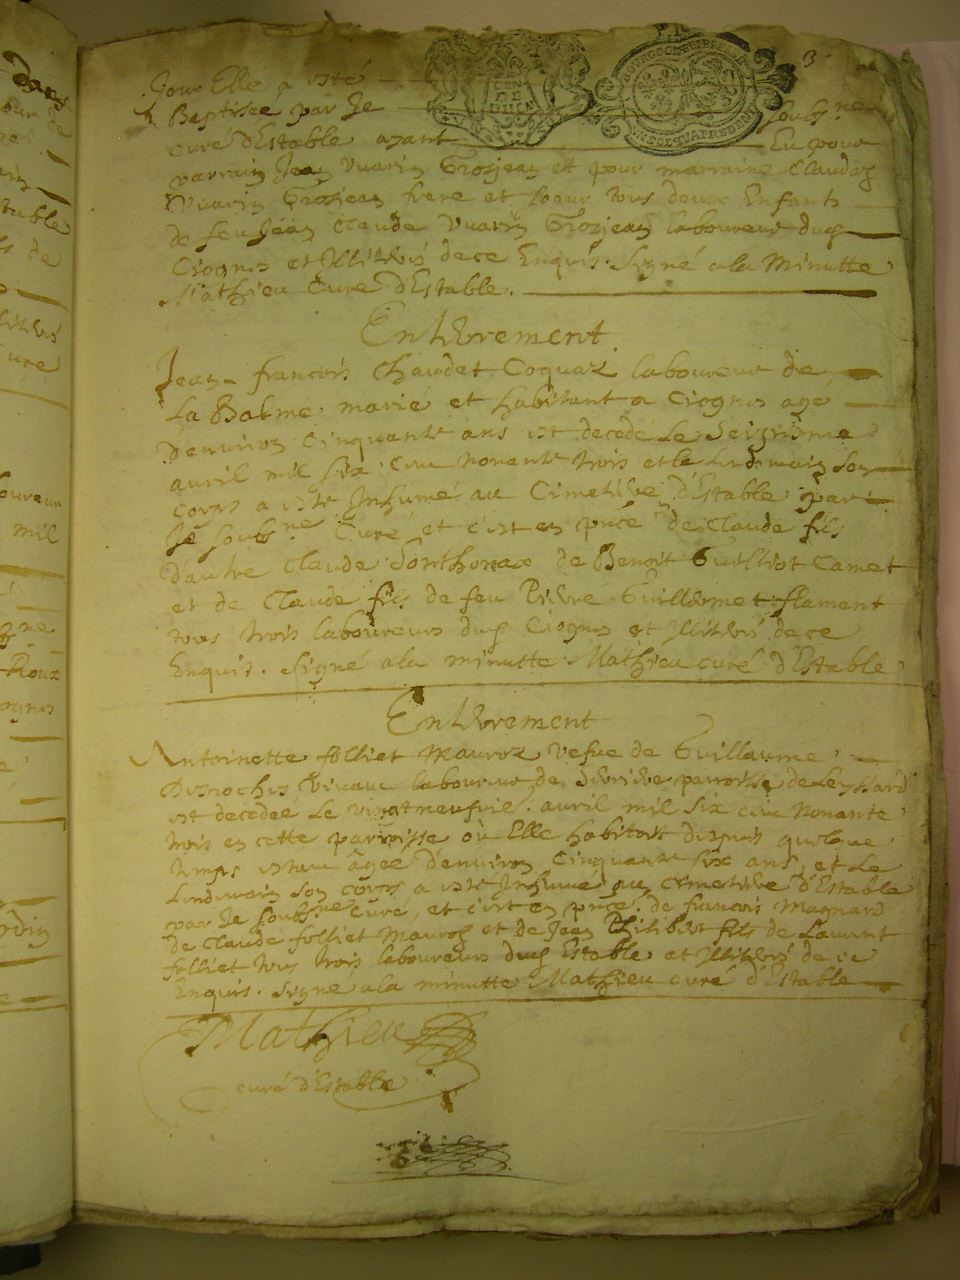 3
Jour Elle a esté
Baptisée par Je Soubs.ne
curé d'Estable ayant Eu pour
parrain Jean Vuarin Grosjean et pour marraine Claudaz
Vuarin Grosjean frere et soeur tous deux Enfants
de feu Jean Claude Vuarin Grosjean laboureur dud
Ciognes et Illiterés de ce Enquis. Signé a la Minutte
Mathieu Curé d'Estable.
Enterrement
Jean francois Chaudet Coquaz laboureur de
La Balme marié et habitant a Ciognes agé
denviron Cinquante ans est decedé Le Seizieme
avril mil six cent nonente trois et le lendemain son
corps a esté Inhumé au Cimetiere d'Estable par
Je soubs.ne Curé et c'est en pnce de Claude fils
d'autre Claude de Benoit Guilliot Camet
et de Claude fils de feu Pierre Guillermet flament
tous trois laboureurs dud Ciognes et Illiterés de ce
Enquis. Signé a la minutte Mathieu curé d'Estable
Enterrement
Antoinette folliet Mauroz Vefue de Guillaume
Desroches Vivant laboureur de parroisse de Leyssard
est decedée Le vingt neufvie. avril mil six cent Nonante
trois en cette parroisse où Elle habitoit depuis quelque
temps estant âgée d'environ Cinquante six ans, et Le
Lendemain son corps a esté Inhumé au Cimetiere d'Estable
par Je soubs.ne Curé, et c'est en pnce. de francois Magnard
de Claude folliet Mauroz et de Jean Philibert fils de Laurent
folliet tous trois laboureurs dud Estable et Illiterés de ce
Enquis. Signe a la minutte Mathieu curé d'Estable
Mathieu
curé d'Estable